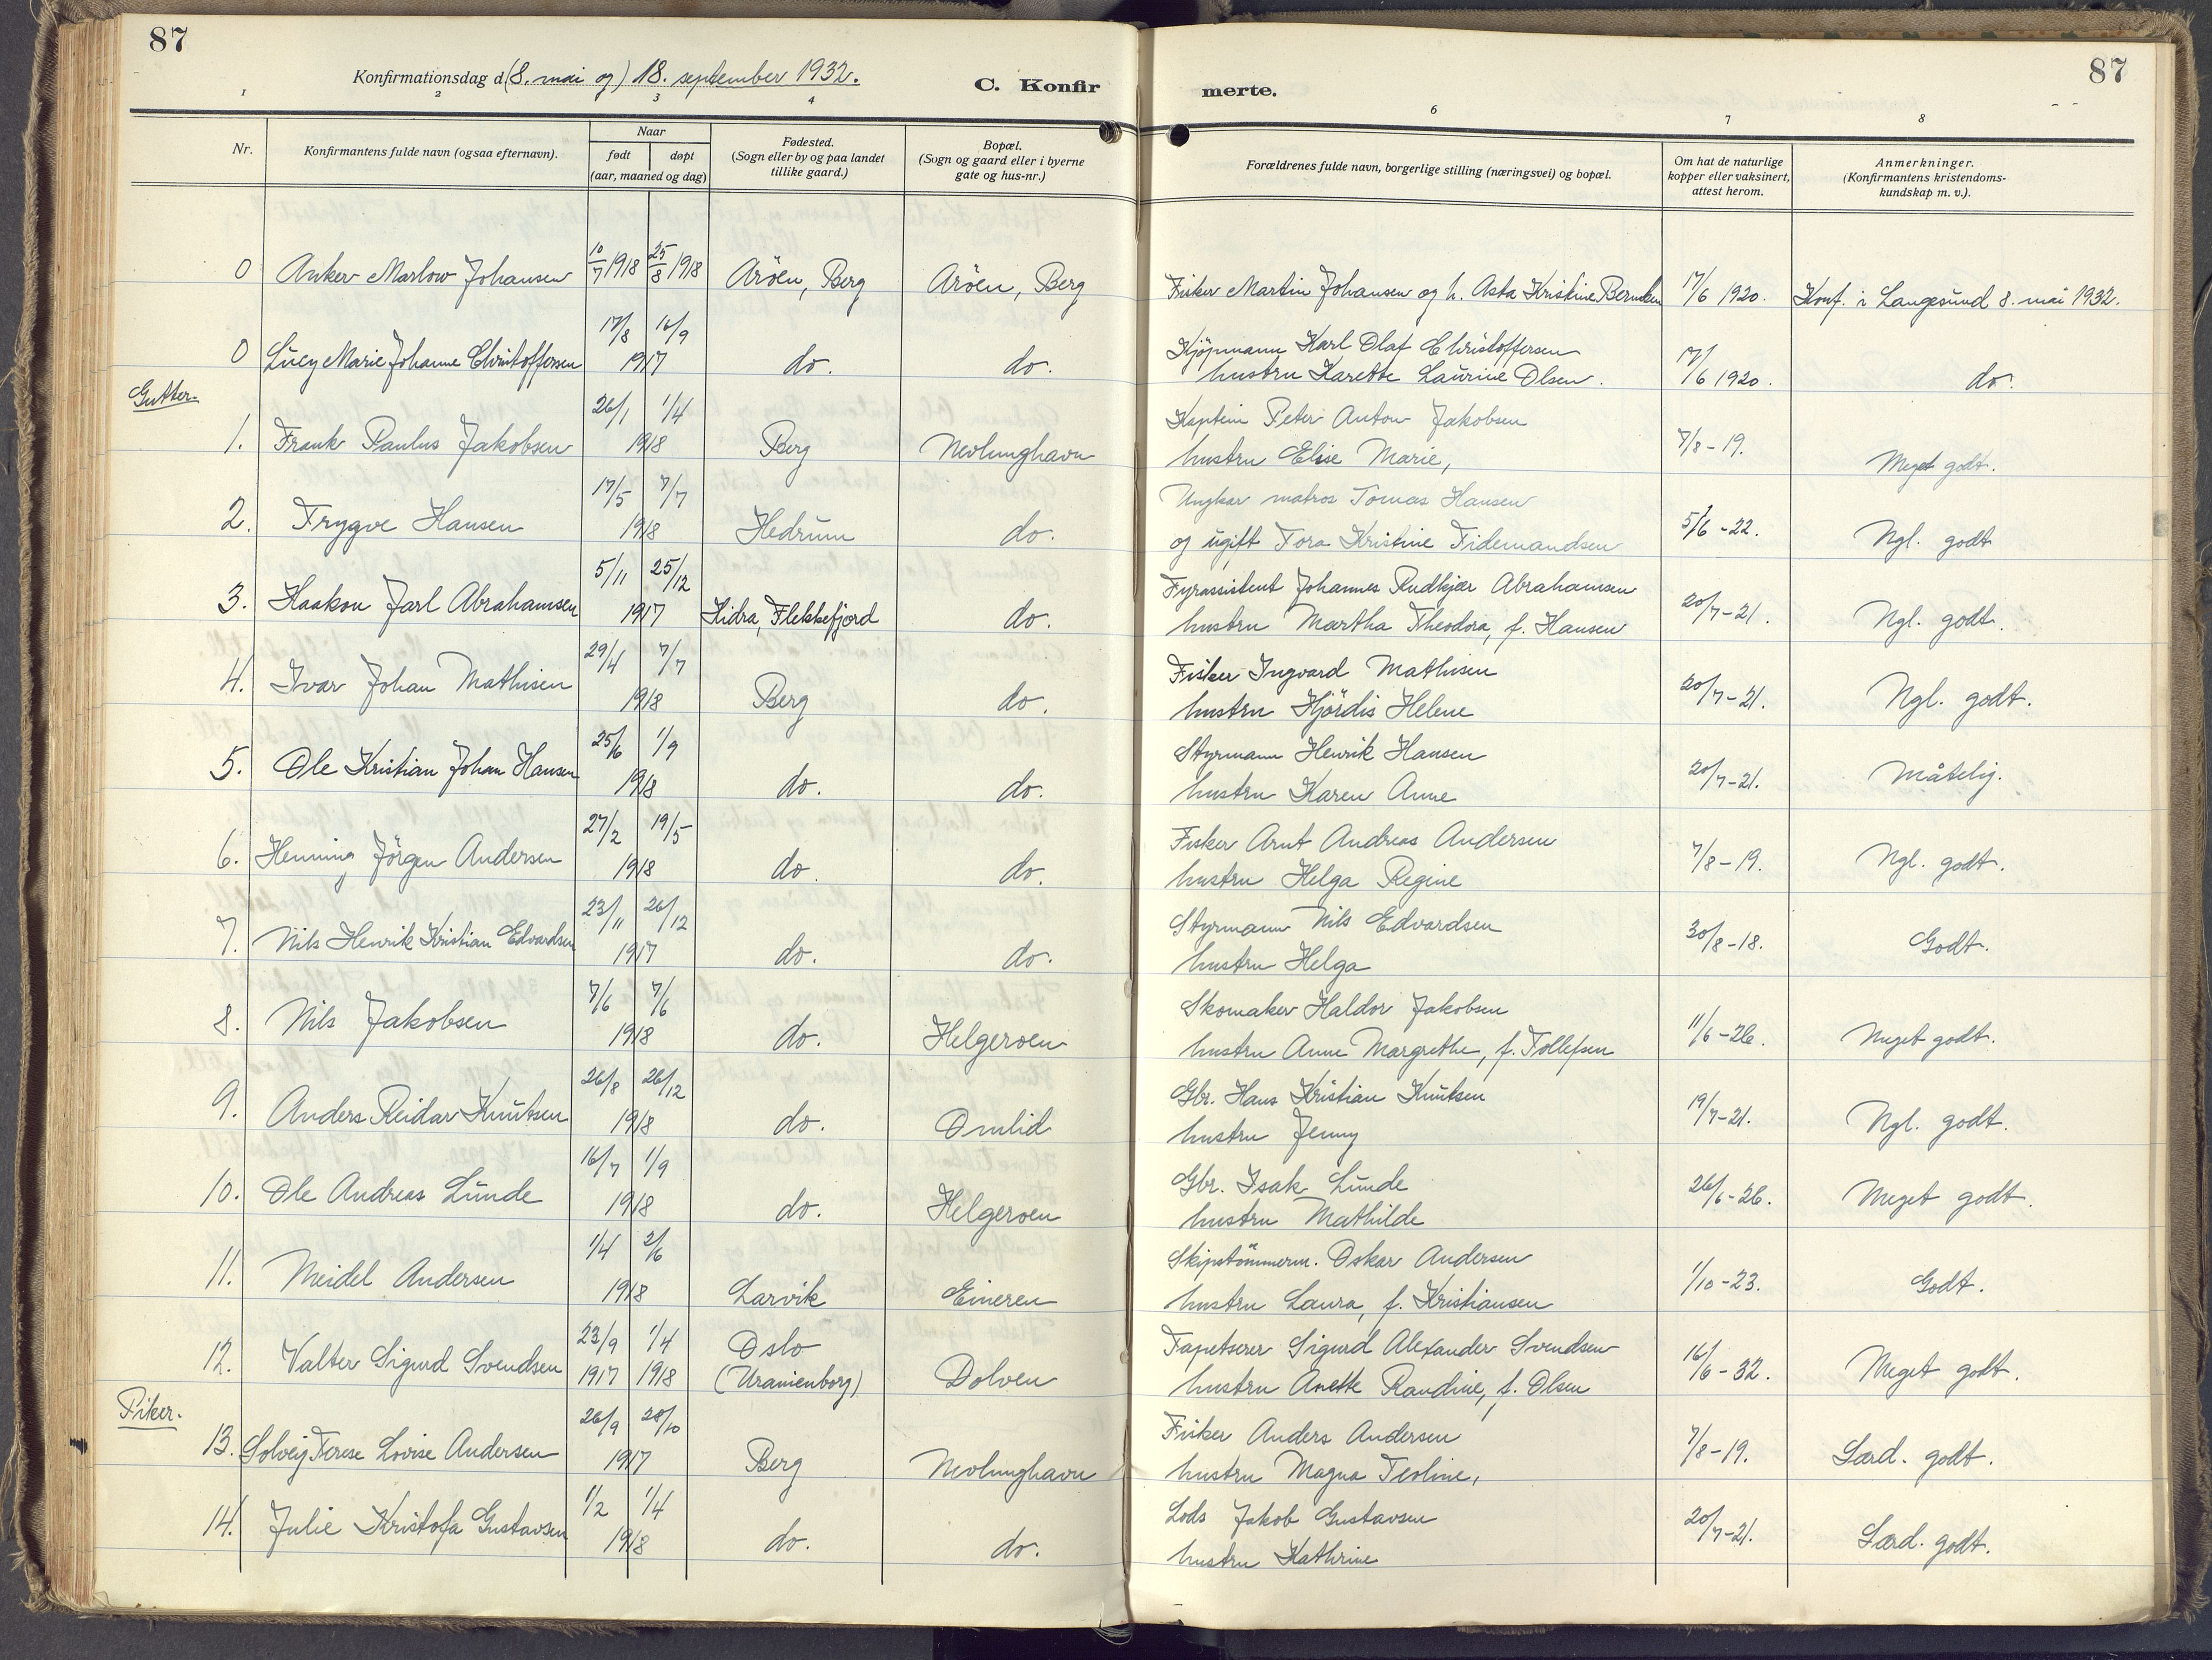 87
87
Konfirmationsdag d (8. mai og) 18. september 1932.
C. Konfir
merte.
1 2 3 4 6 7 8
Nr.
Konfirmantens fulde navn (ogsaa efternavn).
Naar
født døpt
(aar, maaned og dag)
Fødested.
(Sogn eller by og paa landet
tillike gaard.)
Bopæl.
(Sogn og gaard eller i byerne
gate og hus-nr.)
Forældrenes fulde navn, borgerlige stilling (næringsvei) og bopæl.
Om hat de naturlige
kopper eller vaksinert,
attest herom.
Anmerkninger.
(Konfirmantens kristendoms-
kundskap m. v.).
0 Anker Marlow Johansen 10/7 1918 25/8 1918 Aröen, Berg Aröen, Berg Fisker Martin Johansen og h. Asta Kristine Berntsen 17/6 1920. Konf. i Langesund 8. mai 1932.
17/8 16/9 Kjöpmann Karl Olaf Christoffersen
0 Lucy Marie Johanne Christoffersen 1917 do. do. hustru Karette Laurine Olsen. 17/6 1920. do.
Gutter.
26/1 1/4 Kaptein Peter Anton Jakobsen
1. Frank Paulus Jakobsen 1918 Berg Nevlunghavn hustru Elise Marie, 7/8-19. Meget godt.
17/5 7/7 Ungkar matros Tomas Hansen
2. Trygve Hansen 1918 Hedrum do. og ugift Tora Kristine Tidemandsen 5/6-22. Ngl. godt
5/11 25/12 Fyrassistent Johannes Rudkjær Abrahamsen
3. Haakon Jarl Abrahamsen 1917 Hidra, Flekkefjord do. hustru Martha Theodora, f. Hansen 20/7-21. Ngl. godt.
29/4 7/7 Fisker Ingvard Mathisen
4. Ivar Johan Mathisen 1918 Berg do. hustru Hjördis Helene 20/7-21. Ngl. godt.
25/6 1/9 Styrmann Henrik Hansen
5. Ole Kristian Johan Hansen 1918 do. do. hustru Karen Anne 20/7-21. Måtelig.
27/2 19/5 Fisker Arnt Andreas Andersen
6. Henning Jörgen Andersen 1918 do. do. hustru Helga Regine 7/8-19. Ngl. godt.
23/11 26/12 Styrmann Nils Edvardsen
7. Nils Henrik Kristian Edvardsen 1917 do. do. hustru Helga 30/8-18. Godt.
7/6 7/6 Skomaker Haldor Jakobsen
8. Nils Jakobsen 1918 do. Helgeroen hustru Anne Margrethe, f. Tollefsen 11/6-26. Meget godt.
26/8 26/12 Gbr. Hans Kristian Knutsen
9. Anders Reidar Knutsen 1918 do. Omlid hustru Jenny 19/7-21. Ngl. godt.
16/7 1/9 Gbr. Isak Lunde
10. Ole Andreas Lunde 1918 do. Helgeroen hustru Mathilde 26/6-26. Meget godt.
1/4 2/6 Skipstömmerm. Oskar Andersen
11. Meidel Andersen 1918 Larvik Eineren hustru Laura, f. Kristiansen 1/10-23. Godt.
23/9 1/4 Oslo Tapetserer Sigurd Alexander Svendsen
12. Valter Sigurd Svendsen 1917 1918 (Uranienborg) Dolven hustru Anette Randine, f. Olsen 16/6-32. Meget godt.
Piker.
26/9 28/10 Fisker Anders Andersen
13. Solveig Terese Lovise Andersen 1917 Berg Nevlunghavn hustru Magna Teoline, 7/8-19. Særd. godt.
1/2 1/4 Lods Jakob Gustavsen
14. Julie Kristofa Gustavsen 1918 do. do. hustru Kathrine 20/7-21. Særd. godt.